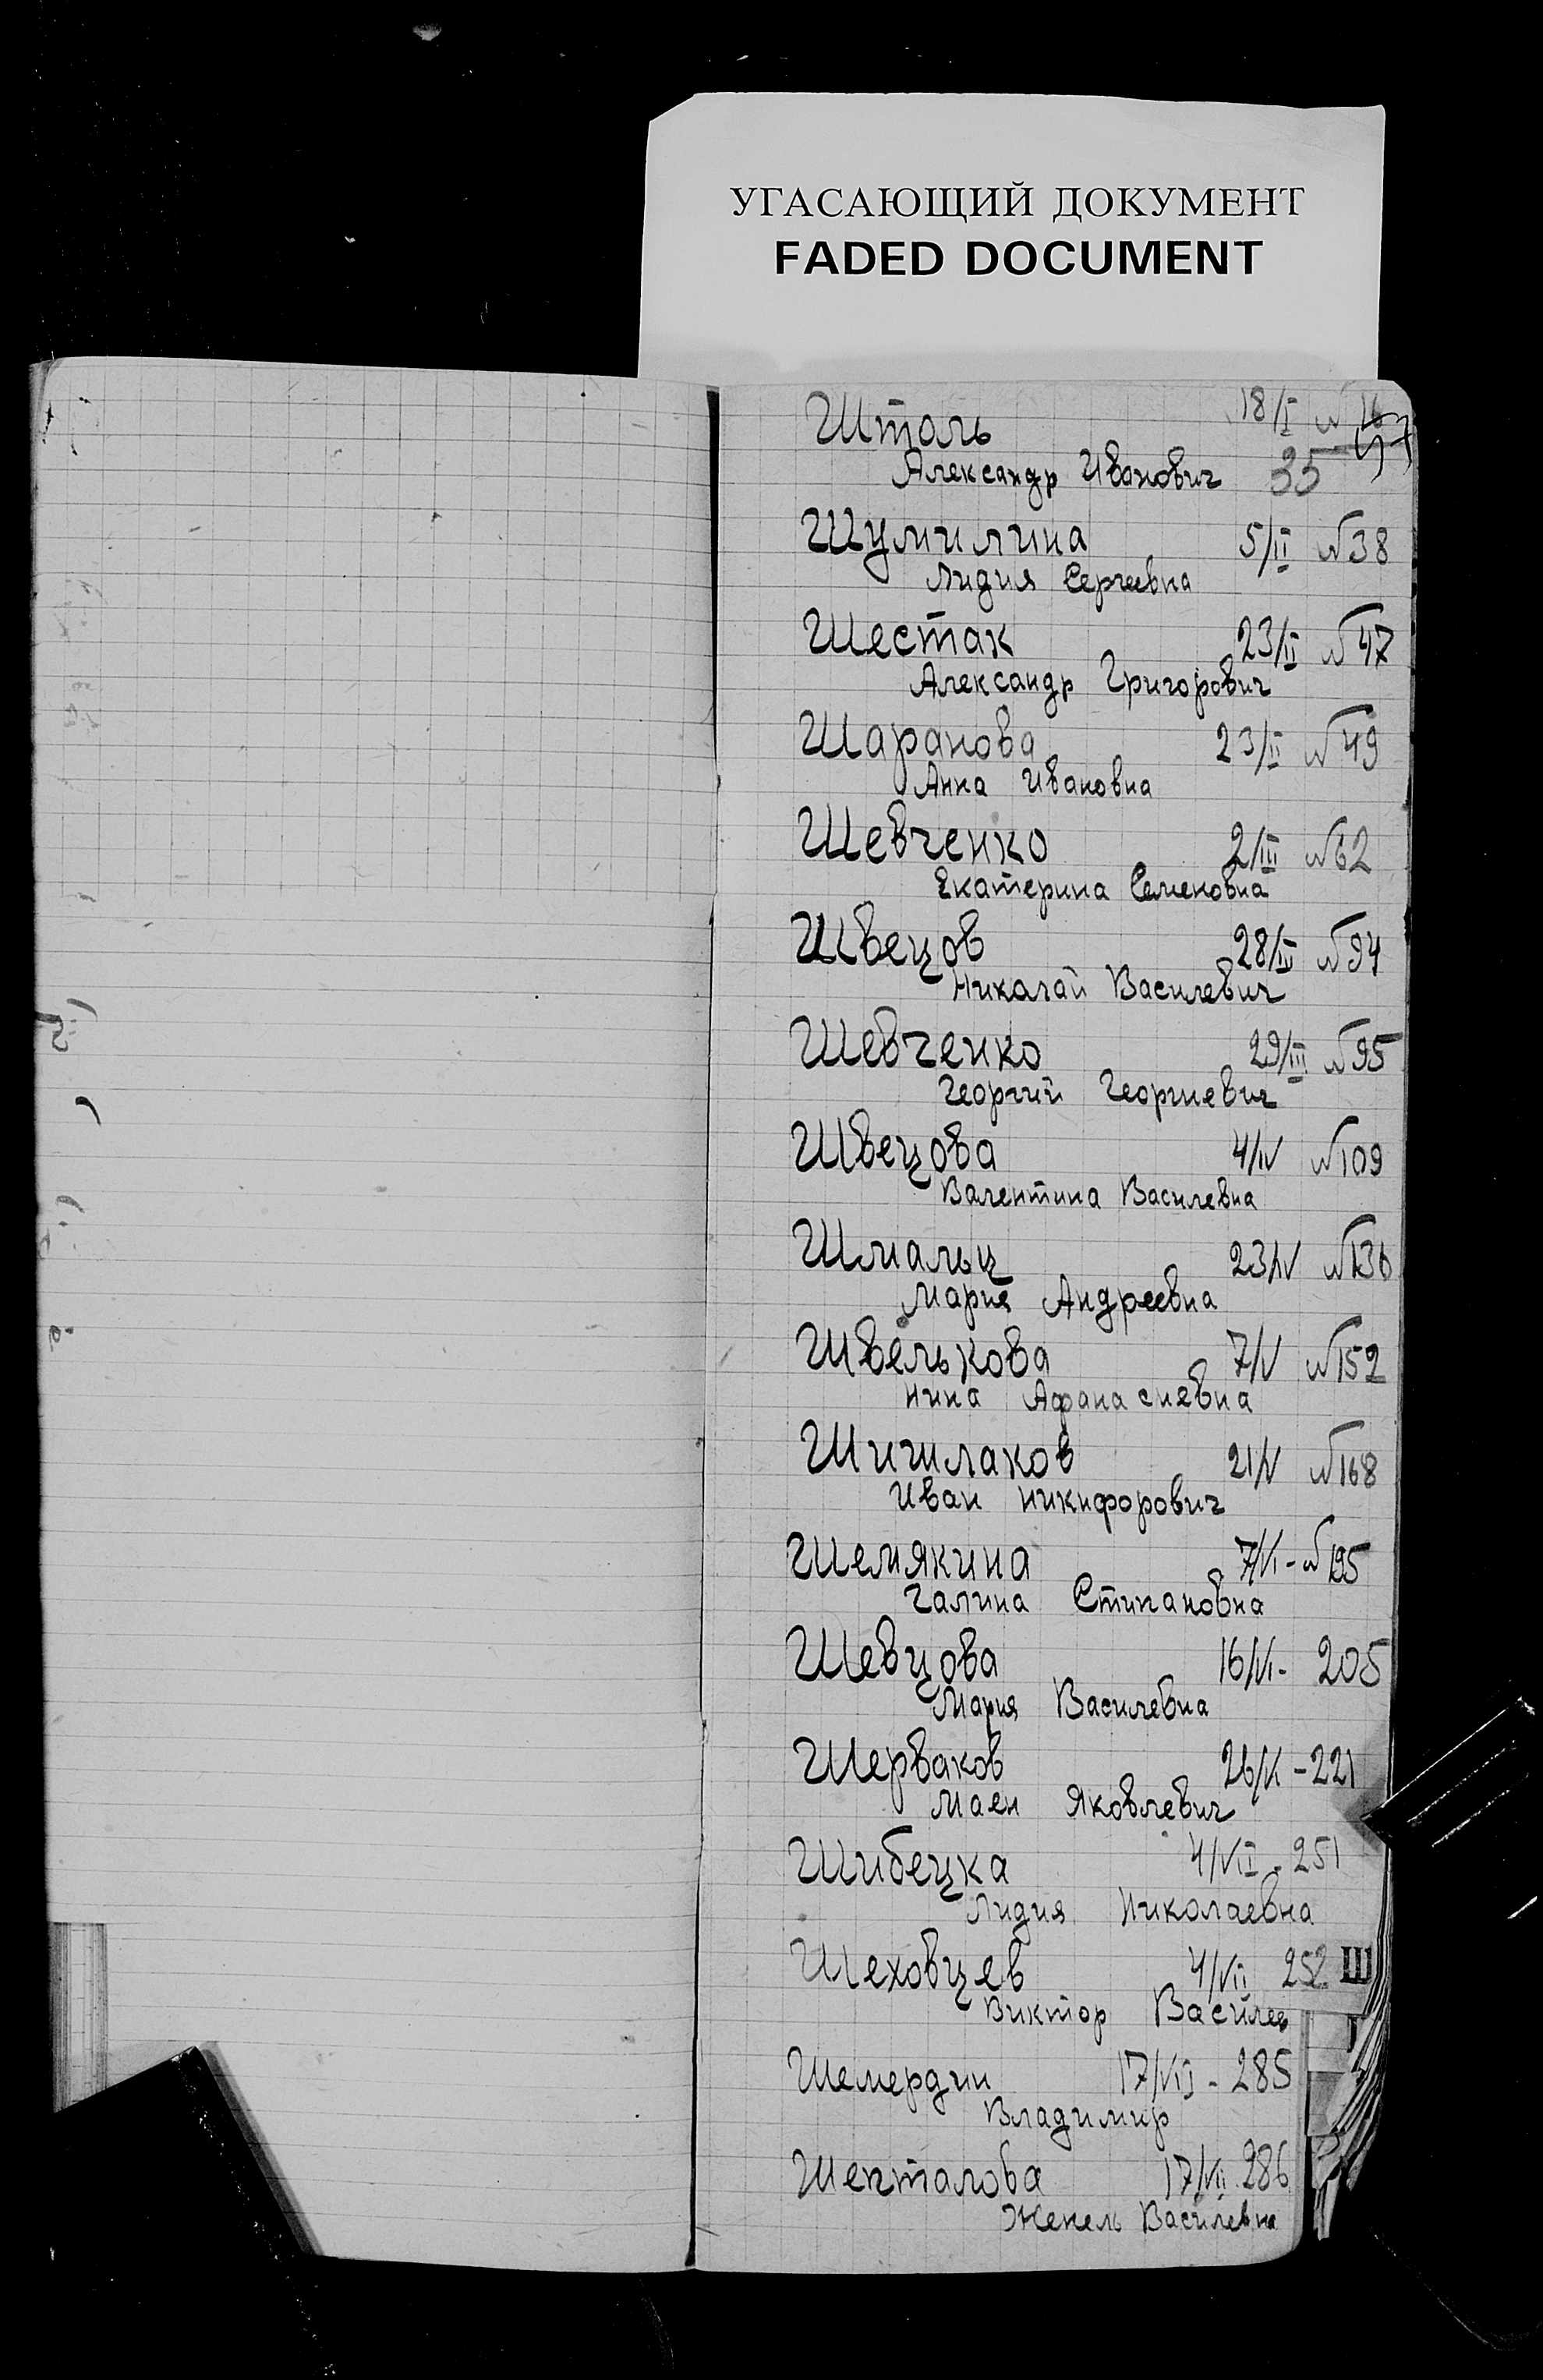 УГАСАЮЩИЙ ДОКУМЕНТ
FADED DOCUMENT
Штоль 18/I №16
Александр Иванович 35 57
Шумилина 5/II №38
Лидия Сергеевна
Шестак 23/II №47
Александр Григорович
Шаранова 23/II №49
Анна Ивановна
Шевченко 2/III №62
Екатерина Семеновна
Швецов 28/III №94
Николай Василевич
Шевченко 29/III №95
Георгий Георгиевич
Швецова 4/IV №109
Валентина Василевна
Шмальц 23/IV №136
Мария Андреевна
Швелькова 7/V №152
Нина Афанасиевна
Шишлаков 21/V №168
Иван Никифорович
Шемякина 7/VI - №195
Галина Стипановна
Шевцова 16/VI - 205
Мария Василевна
Шерваков 26/VI - 221
Маен Яковлевич
Шибецка 4/VII - 251
Лидия Николаевна
Шеховцев 4/VII 252 Ш
Виктор Василев
Шемердин 17/VII - 285
Владимир
Шепталова 17/VII 286
Женель Василевна